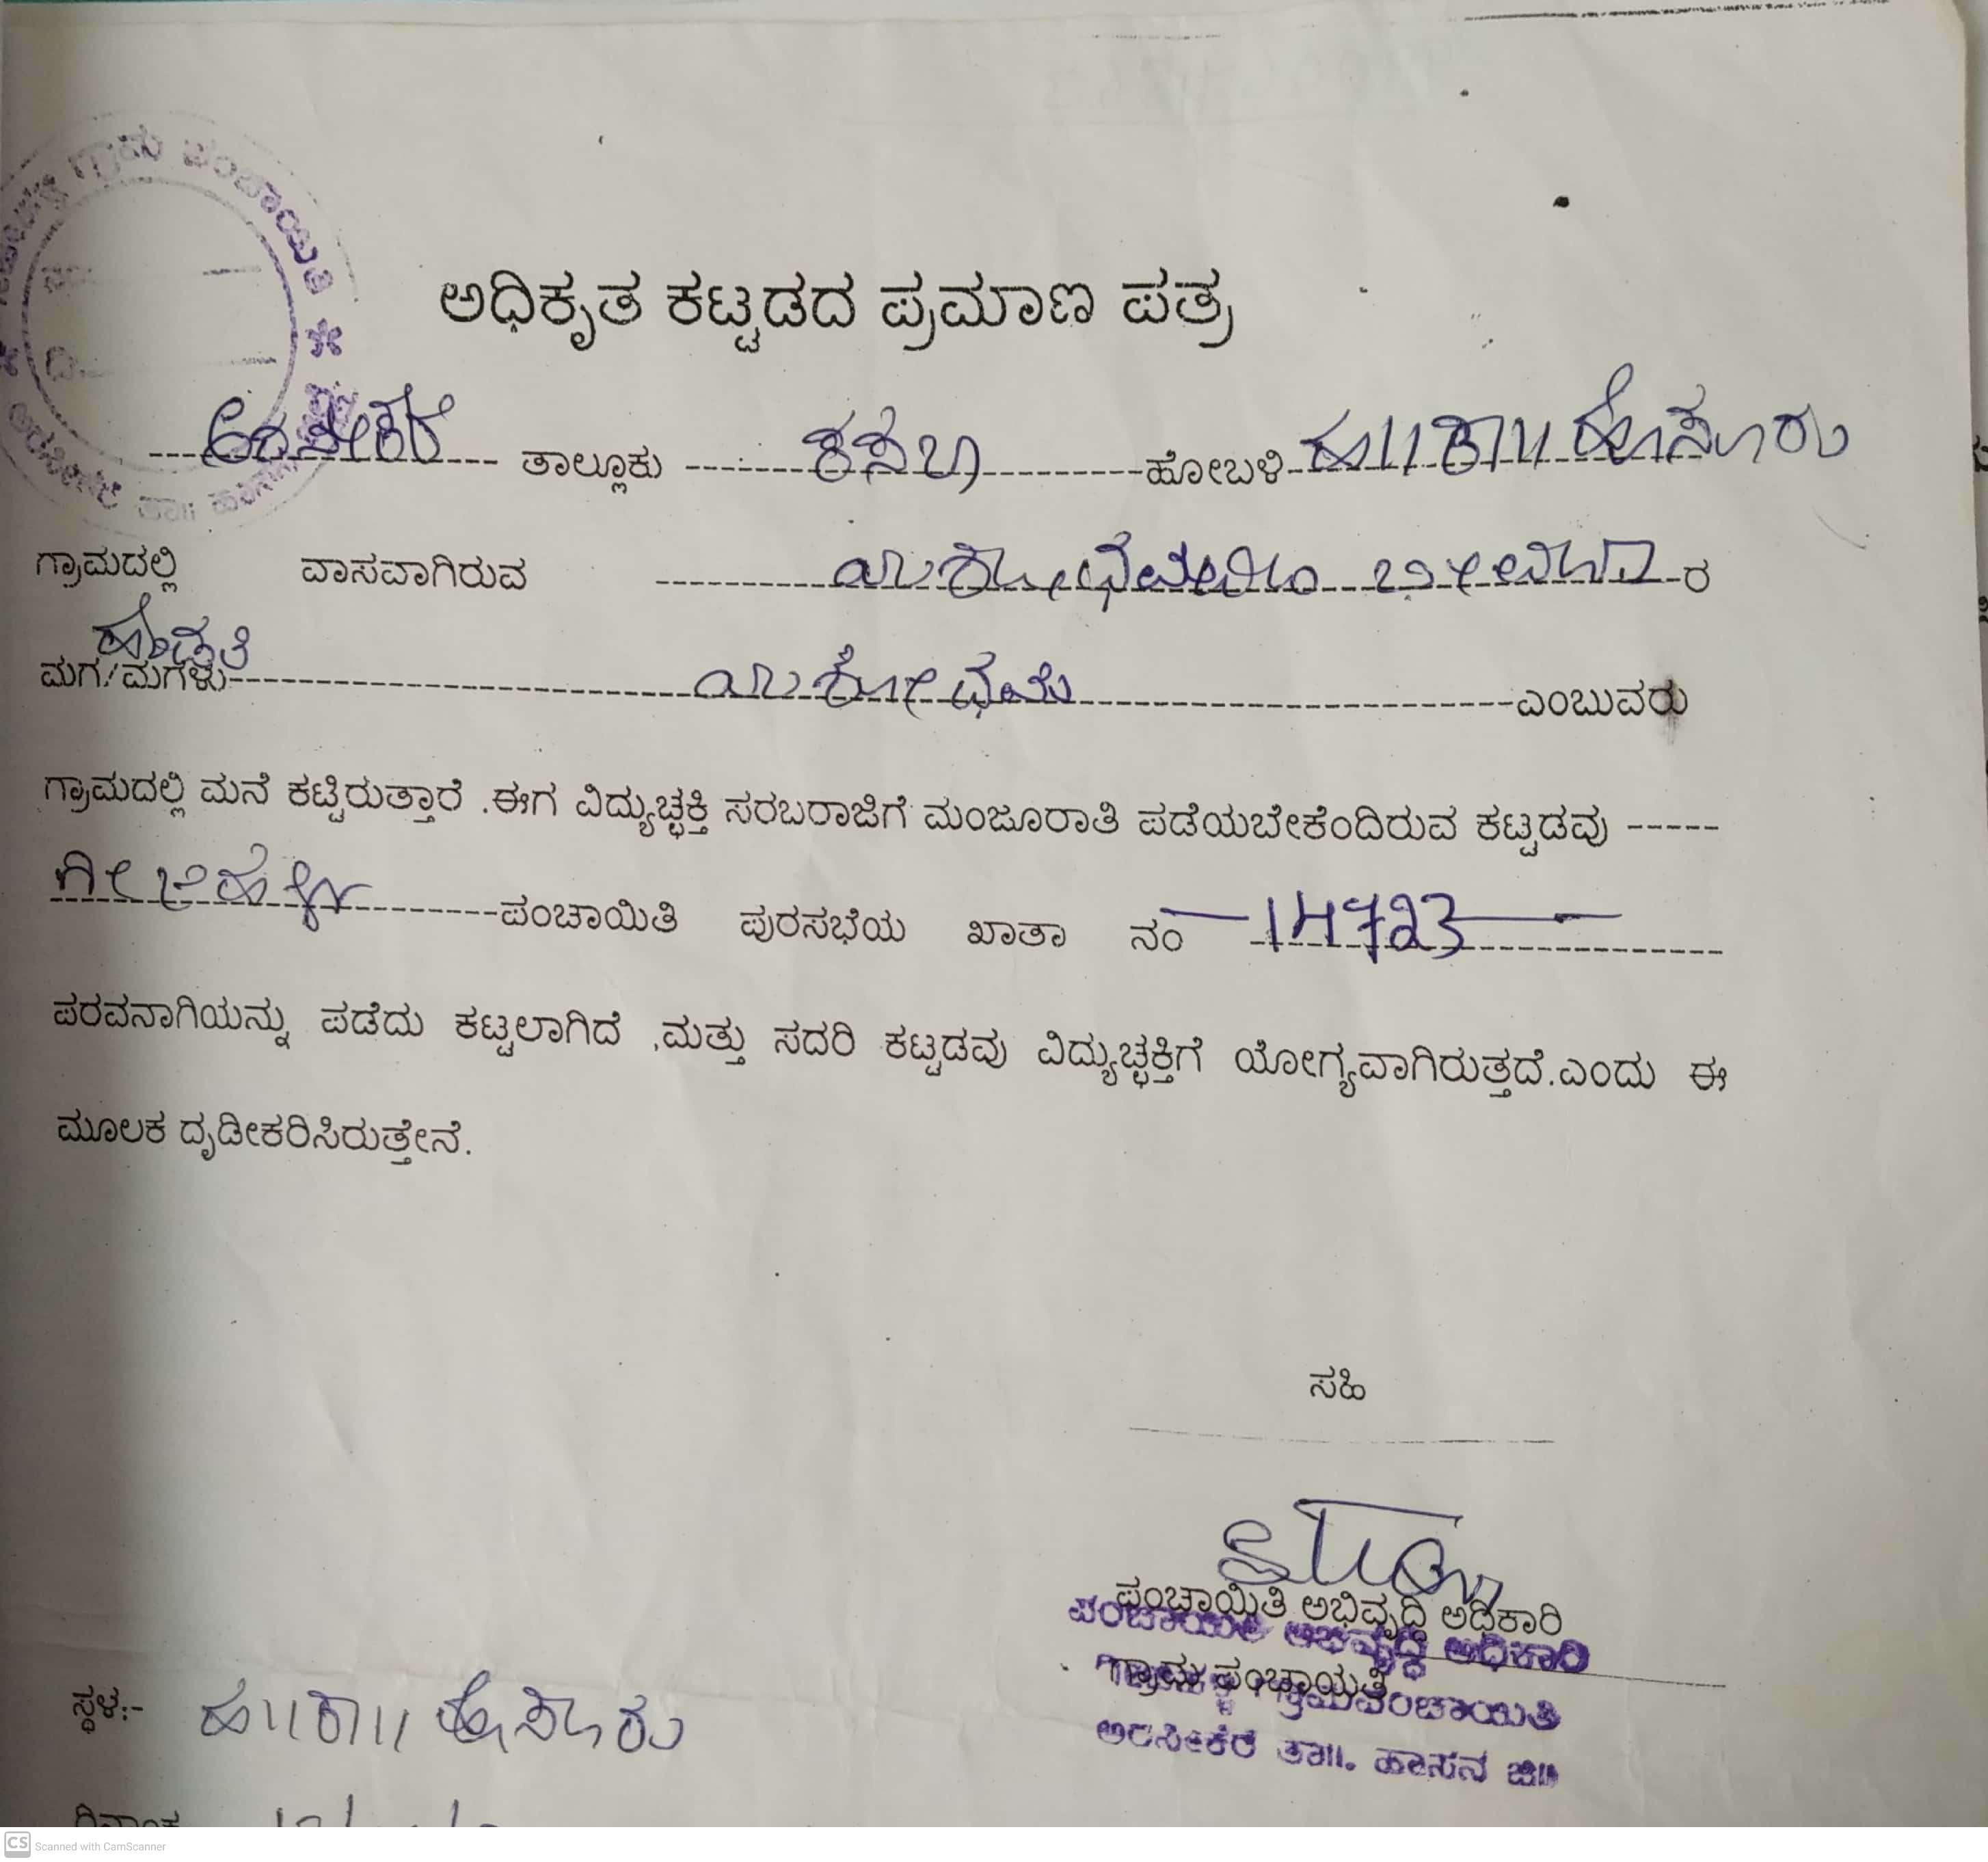 ಗ್ರಾಮ ಪಂಚಾಯಿತಿ
ಅರಸೀಕೆರೆ ತಾ||
ಅಧಿಕೃತ ಕಟ್ಟಡದ ಪ್ರಮಾಣ ಪತ್ರ
ತಾಲ್ಲೂಕು ಕಸಬಾ ಹೋಬಳಿ ಹು||ಕಾ|| ಹೊಸೂರು
ಗ್ರಾಮದಲ್ಲಿ ವಾಸವಾಗಿರುವ ರ
ಹೆಂಡತಿ
ಮಗ/ಮಗಳು ಯಶೋಧಮ್ಮ ಎಂಬುವರು
ಗ್ರಾಮದಲ್ಲಿ ಮನೆ ಕಟ್ಟಿರುತ್ತಾರೆ .ಈಗ ವಿದ್ಯುಚ್ಛಕ್ತಿ ಸರಬರಾಜಿಗೆ ಮಂಜೂರಾತಿ ಪಡೆಯಬೇಕೆಂದಿರುವ ಕಟ್ಟಡವು -----
ಪಂಚಾಯಿತಿ ಪುರಸಭೆಯ ಖಾತಾ ನಂ 14723
ಪರವನಾಗಿಯನ್ನು ಪಡೆದು ಕಟ್ಟಲಾಗಿದೆ ,ಮತ್ತು ಸದರಿ ಕಟ್ಟಡವು ವಿದ್ಯುಚ್ಛಕ್ತಿಗೆ ಯೋಗ್ಯವಾಗಿರುತ್ತದೆ.ಎಂದು ಈ
ಮೂಲಕ ದೃಡೀಕರಿಸಿರುತ್ತೇನೆ.
ಸಹಿ
ಪಂಚಾಯಿತಿ ಅಭಿವೃದ್ಧಿ ಅಧಿಕಾರಿ
ಪಂಚಾಯಿತಿ ಅಭಿವೃದ್ಧಿ ಅಧಿಕಾರಿ
ಗ್ರಾಮ ಪಂಚಾಯತಿ
ಗ್ರಾಮಪಂಚಾಯಿತಿ
ಅರಸೀಕೆರೆ ತಾ||. ಹಾಸನ ಜಿ||
ಸ್ಥಳ:- ಹು||ಕಾ|| ಹೊಸೂರು
ದಿನಾಂಕ
CS Scanned with CamScanner